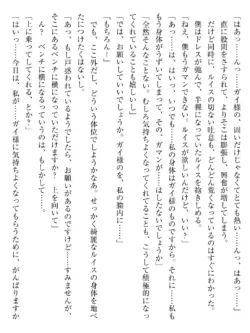 「はぁっ……ガイ様の、固いだけじゃなくてとても熱い……ん、はぁっ……」
直に股間をすられるたびにそこは膨張し、興奮が増していく。
だけど同時に、ルイスの切ない吐息も、どんどん荒くなっていった。
僕はドレスが透けて、半裸になっているルイスを抱きしめる。
「ねえ、僕もうガマンができないよ。ルイスが欲しい」
「あっ……は、はいっ、いつでも……私の身体はガイ様の、あっ……私
もう身体がうずいてしまって……はしたなくて、ごめんなさい」
「全然そんなことないよ。むしろ気持ちよくなってくれて、こうして積極的にな
ってくれていることも嬉しい」
「では、お願いしていいですか。ガイ様のを、私の膣内に……」
「もちろん」
でも、ここ外だし、どういう体位でしようかなあ。せっかく綺麗なルイスの身体を地べ
たにつけたくはないし。
「あっ、もし戸惑われているようでしたら、お願いがあるのですけど……すみませんが、
そこにあるベンチに横になっていただけますか？　上を向いて」
「あれ、ベンチに横になるっていうのは、もしかして……」
「はいっ……今日は、私が……ガイ様に気持ちよくなってもらうために、がんばりますか